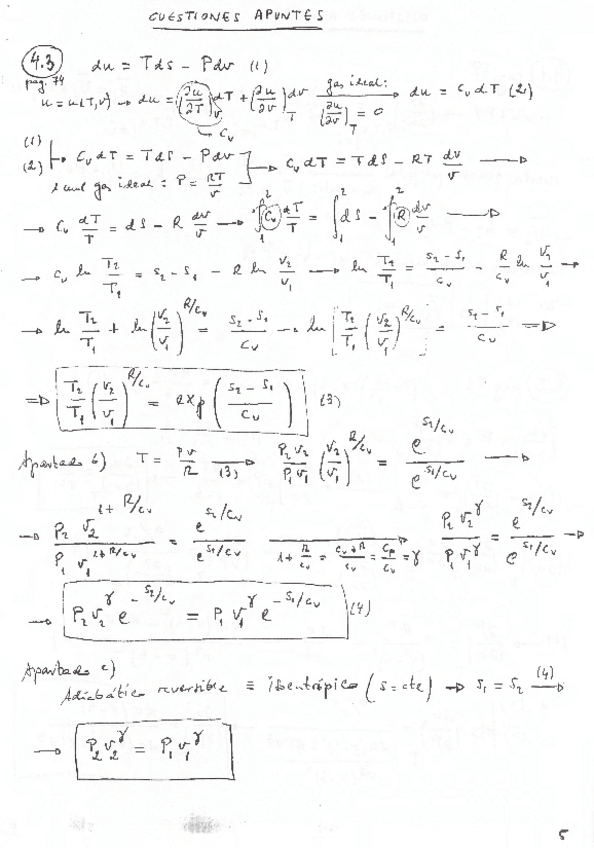 CUESTIONES APUNTES
4.3 du = Tds - Pdv (1)
pag. 74
u = u(T,v) → du = (∂u/∂T)_v dT + (∂u/∂v)_T dv gas ideal: (∂u/∂v)_T = 0 → du = c_v dT (2)
→ c_v
(1) (2) → c_v dT = Tds - Pdv
gas ideal: P = RT/v → c_v dT = Tds - RT dv/v →
→ c_v dT/T = ds - R dv/v → ∫₁² c_v dT/T = ∫₁² ds - ∫₁² R dv/v →
→ c_v ln T₂/T₁ = s₂ - s₁ - R ln v₂/v₁ → ln T₂/T₁ = (s₂ - s₁)/c_v - R/c_v ln v₂/v₁ →
→ ln T₂/T₁ + ln (v₂/v₁)^(R/c_v) = (s₂ - s₁)/c_v → ln [T₂/T₁ (v₂/v₁)^(R/c_v)] = (s₂ - s₁)/c_v ⇒
⇒ T₂/T₁ (v₂/v₁)^(R/c_v) = exp ((s₂ - s₁)/c_v) (3)
Apartado b) T = Pv/R (3) → P₂v₂/P₁v₁ (v₂/v₁)^(R/c_v) = e^(s₂/c_v)/e^(s₁/c_v) →
→ P₂ v₂^(1+R/c_v)/P₁ v₁^(1+R/c_v) = e^(s₂/c_v)/e^(s₁/c_v) 1 + R/c_v = (c_v + R)/c_v = c_p/c_v = γ → P₂v₂^γ/P₁v₁^γ = e^(s₂/c_v)/e^(s₁/c_v) →
→ P₂v₂^γ e^(-s₂/c_v) = P₁v₁^γ e^(-s₁/c_v) (4)
Apartado c)
Adiabático reversible ≡ isentrópico (s = cte) → s₁ = s₂ (4) →
→ P₂v₂^γ = P₁v₁^γ
5